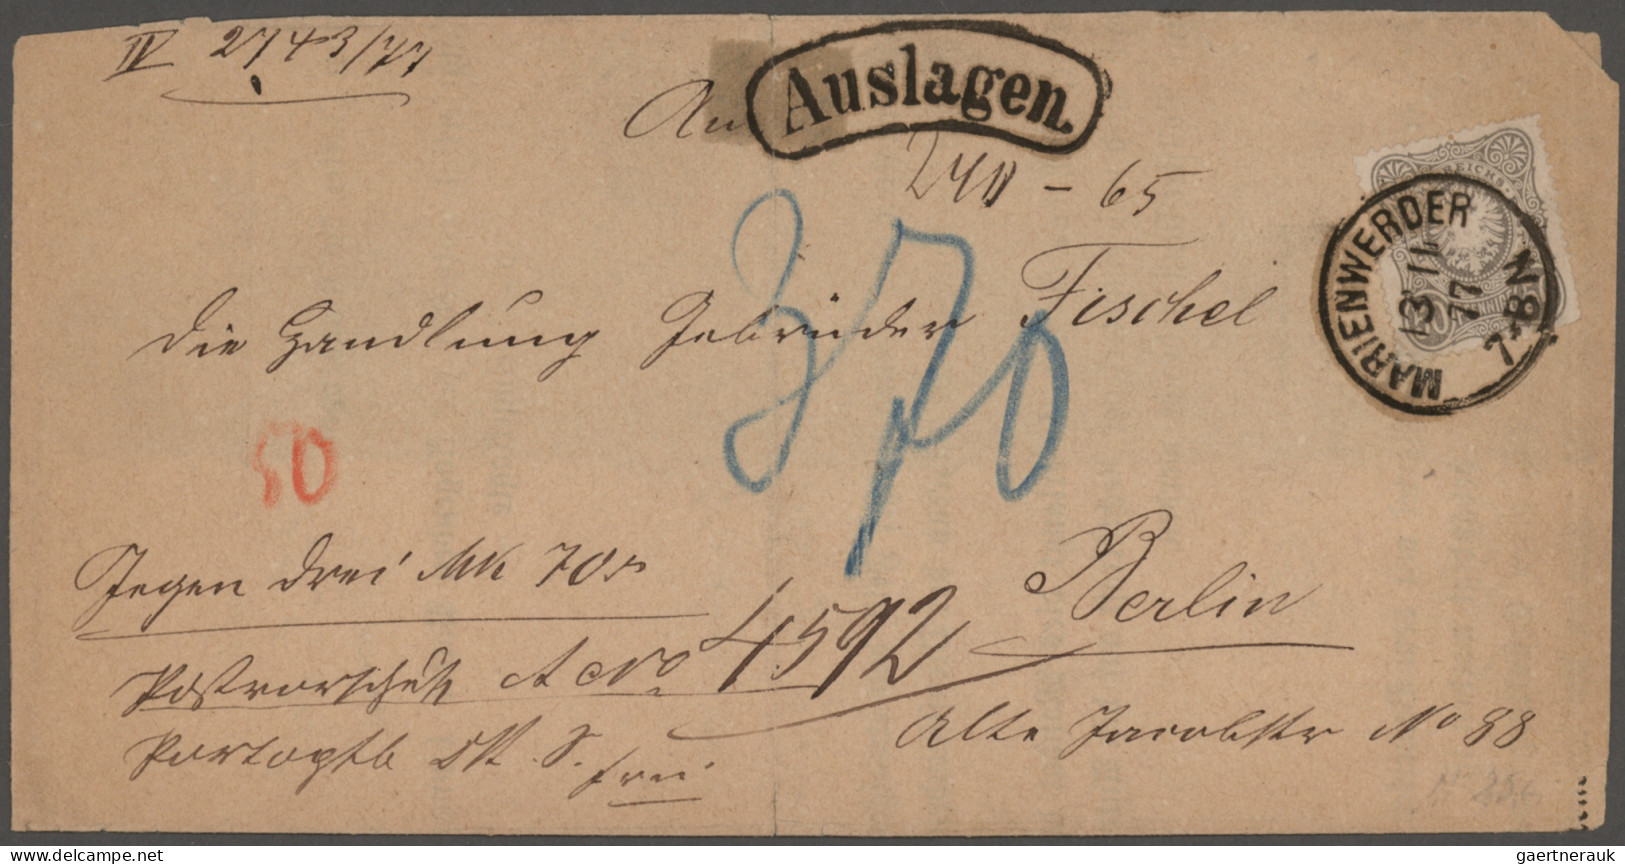 IV 2743/77
Auslagen.
An
240 - 65
REICHS
die Handlung Gebrüder Fischel
370
MARIENWERDER
13 11
77
7-8N
50
Gegen drei Mk 70
Berlin
Postvorschuß No 4592
Alte Jacobstr No 88
frei
delcampe.net
gaertnerauk